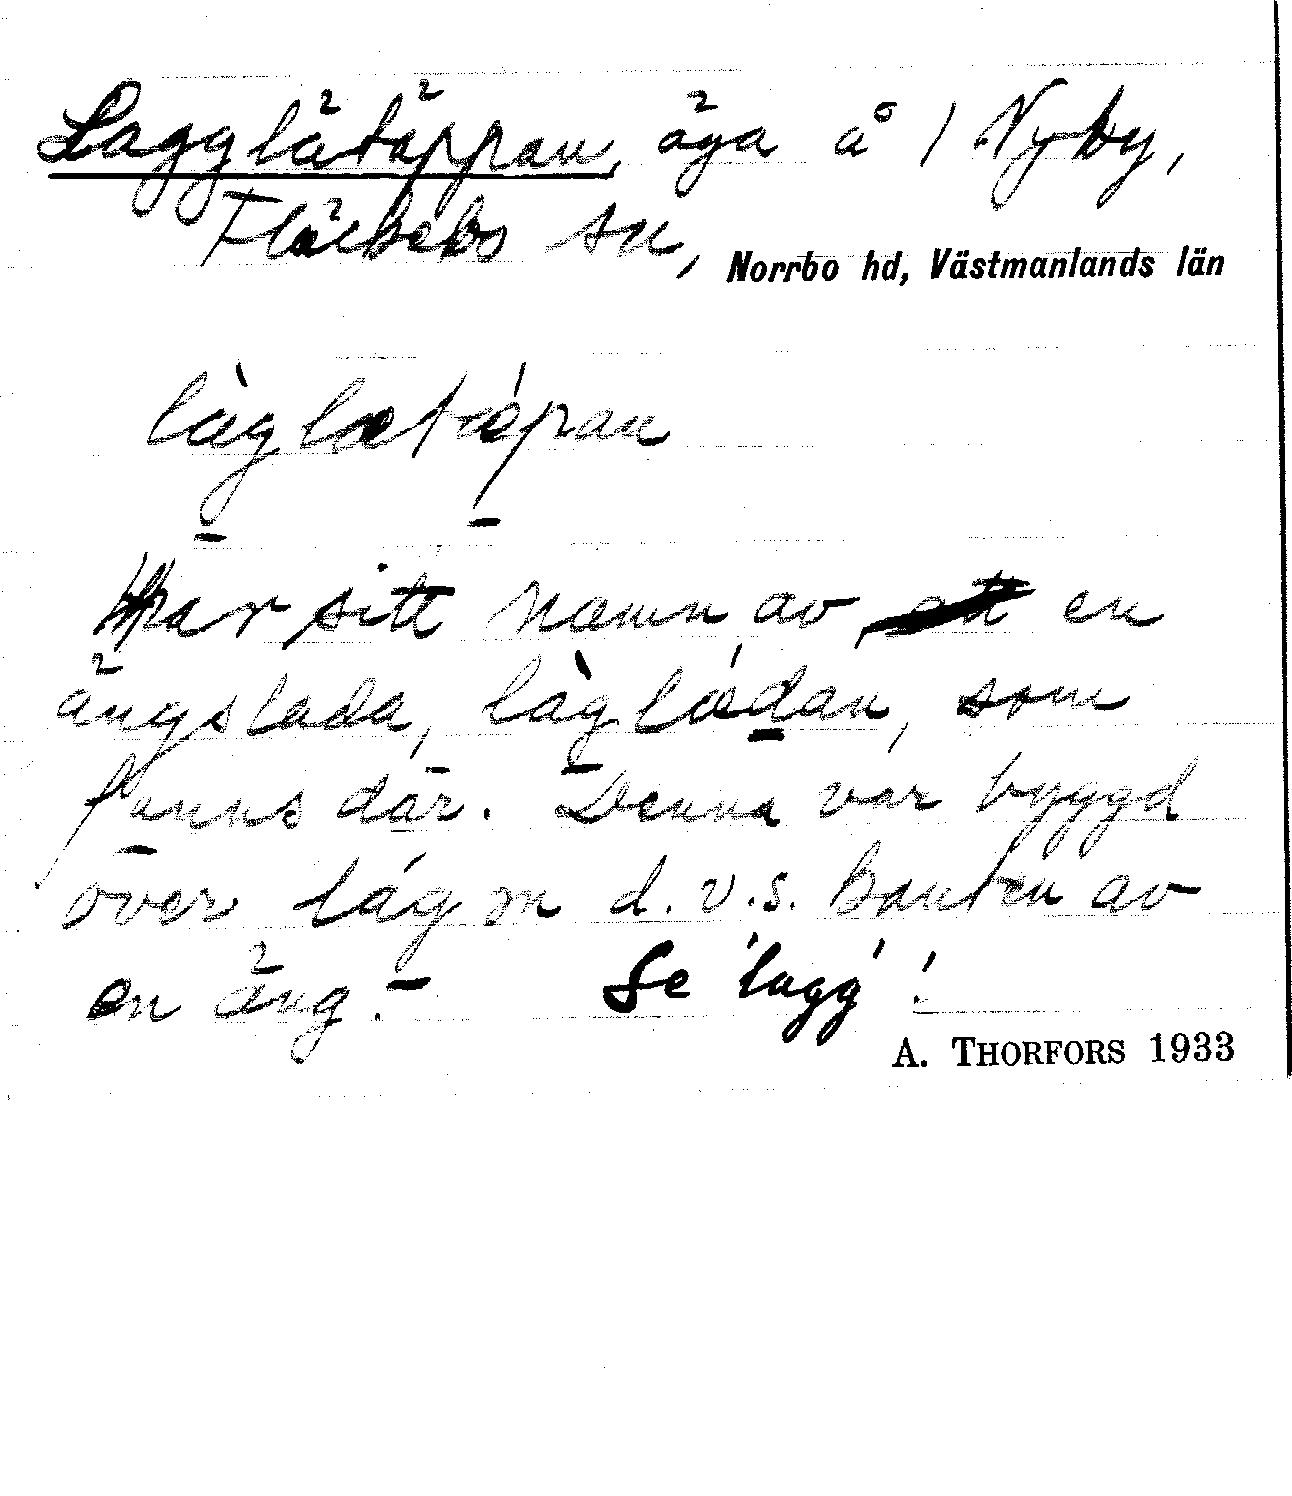 Lagglätäppan, äga å 1 Nyby,
Fläckebo sn, Norrbo hd, Västmanlands län
làglætǽpan
Har sitt namn av en
ängslada, làglǽdan, som
funns där. Denna var byggd
över lágm d.v.s. kanten av
en äng. – Se 'lagg'!
A. THORFORS 1933